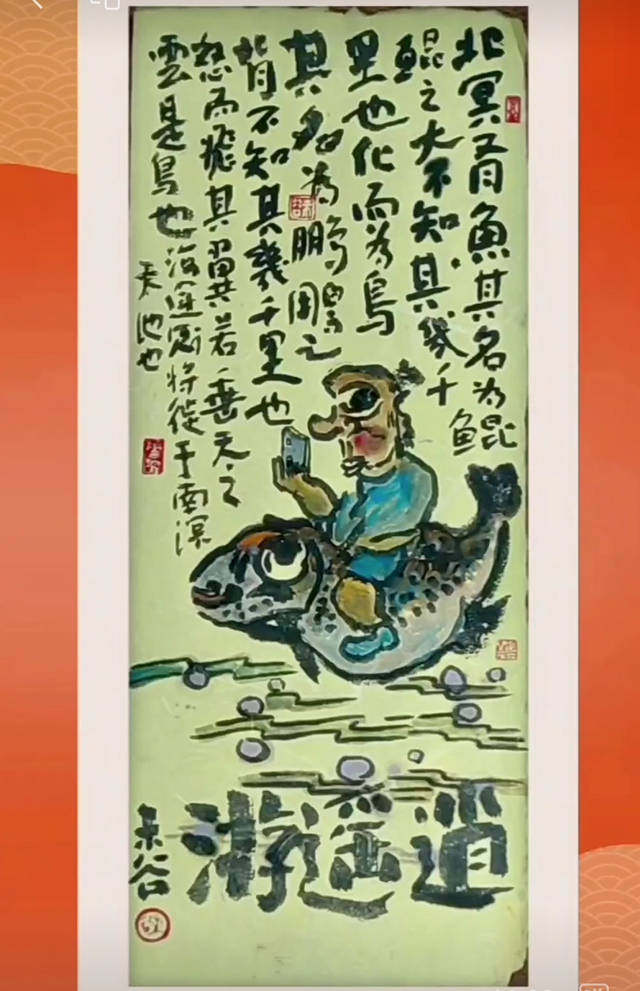 北冥有魚其名为鲲
鲲之大不知其幾千
里也化而为鸟
其名为鹏鹏之
背不知其幾千里也
怒而飛其翼若垂天之
雲是鸟也海運則将徙于南溟
天池也
逍遥游
禾谷